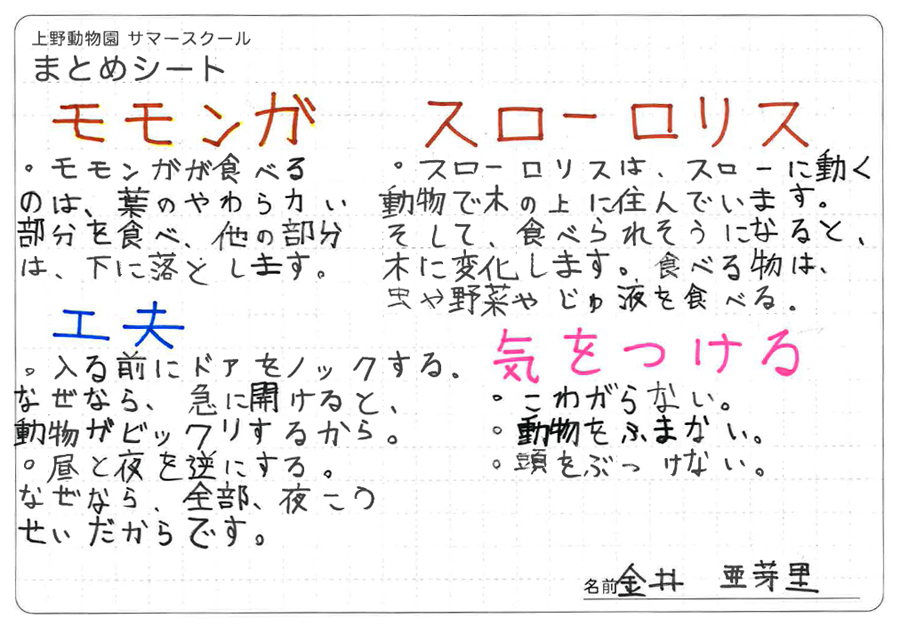 上野動物園 サマースクール
まとめシート
モモンガ
・モモンガが食べる
のは、葉のやわらカい
部分を食べ、他の部分
は、下に落とします。
工夫
。入る前にドアをノックする.
なぜなら、急に開けると、
動物がビックリするから。
・昼と夜を逆にする。
なぜなら、全部、夜こう
せいだからです。
スローロリス
・スローロリスは、スローに動く
動物で木の上に住んでいます。
そして、食べられそうになると、
木に変化します。食べる物は、
虫や野菜やじゅ液を食べる.
気をつける
・こわがらない。
・動物をふまない。
・頭をぶつけない。
名前 金井 亜芽里